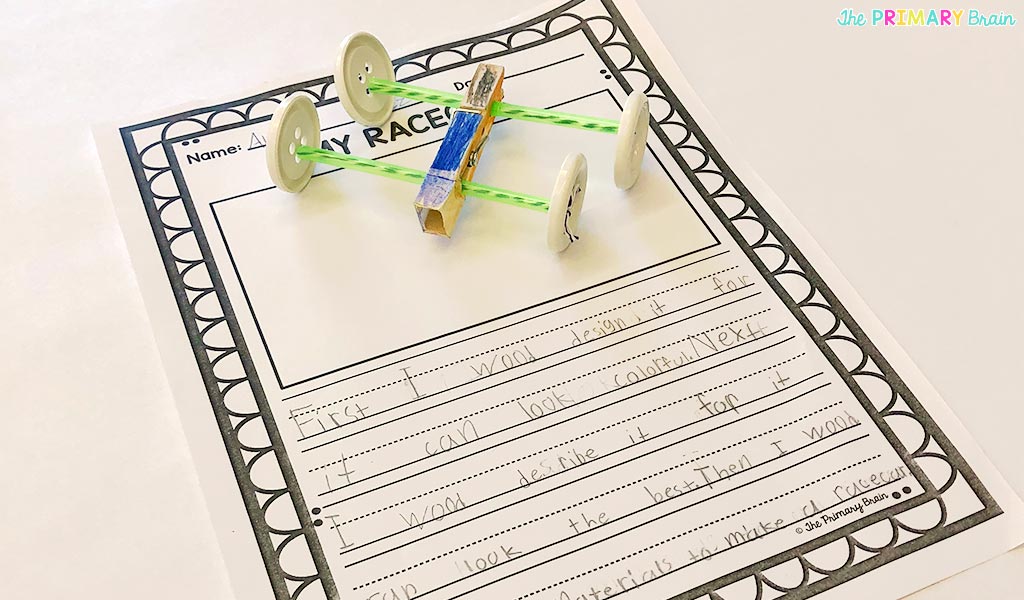 The PRIMARY Brain
Name:
MY
First I wood design it for
it can look colorful. Next
I wood describe it for it
can look the best. Then I wood
materials to make a racecar
© The Primary Brain